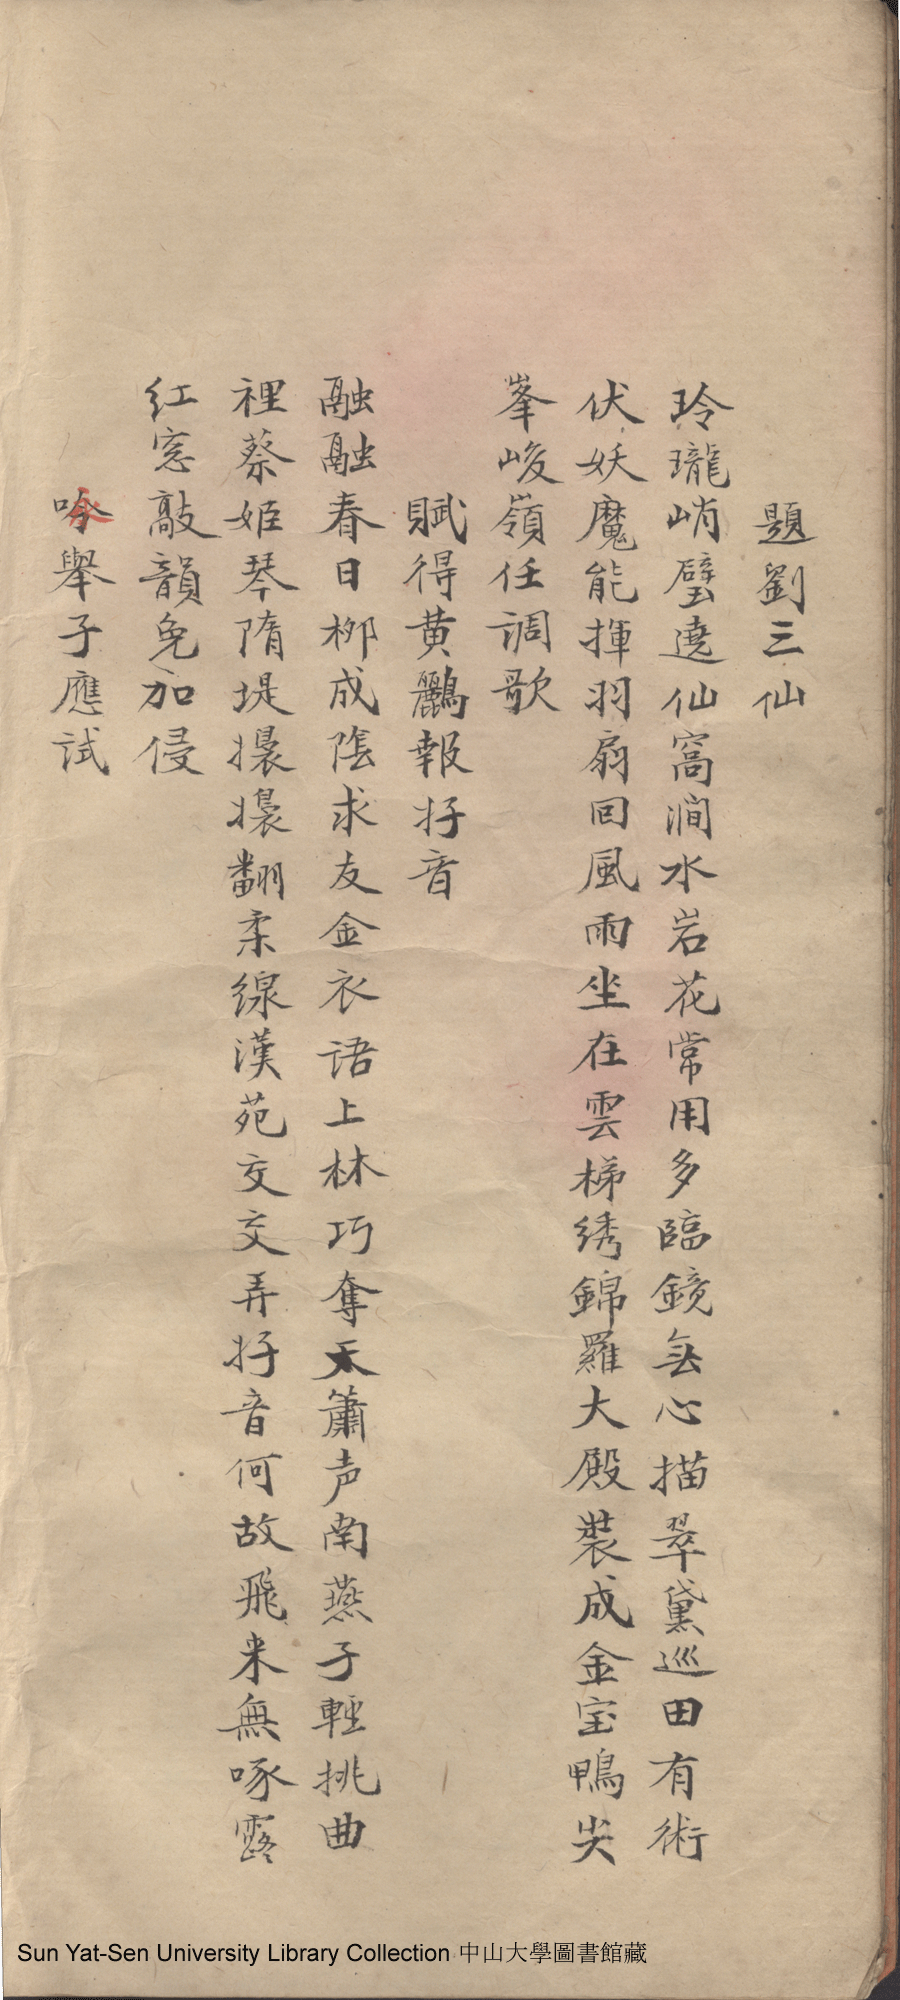 題劉三仙
玲瓏峭壁遶仙窩澗水岩花常用多臨鏡無心描翠黛巡田有術
伏妖魔能揮羽扇回風雨坐在雲梯綉錦羅大殿裝成金宝鴨尖
峯峻嶺任調歌
賦得黃鸝報好音
融融春日柳成陰求友金衣語上林巧奪天簫声南燕子輕挑曲
裡蔡姬琴隋堤擐擐翻柔線漢苑交交弄好音何故飛来無啄露
红窓敲韻免加侵
咏舉子應試
Sun Yat-Sen University Library Collection 中山大學圖書館藏